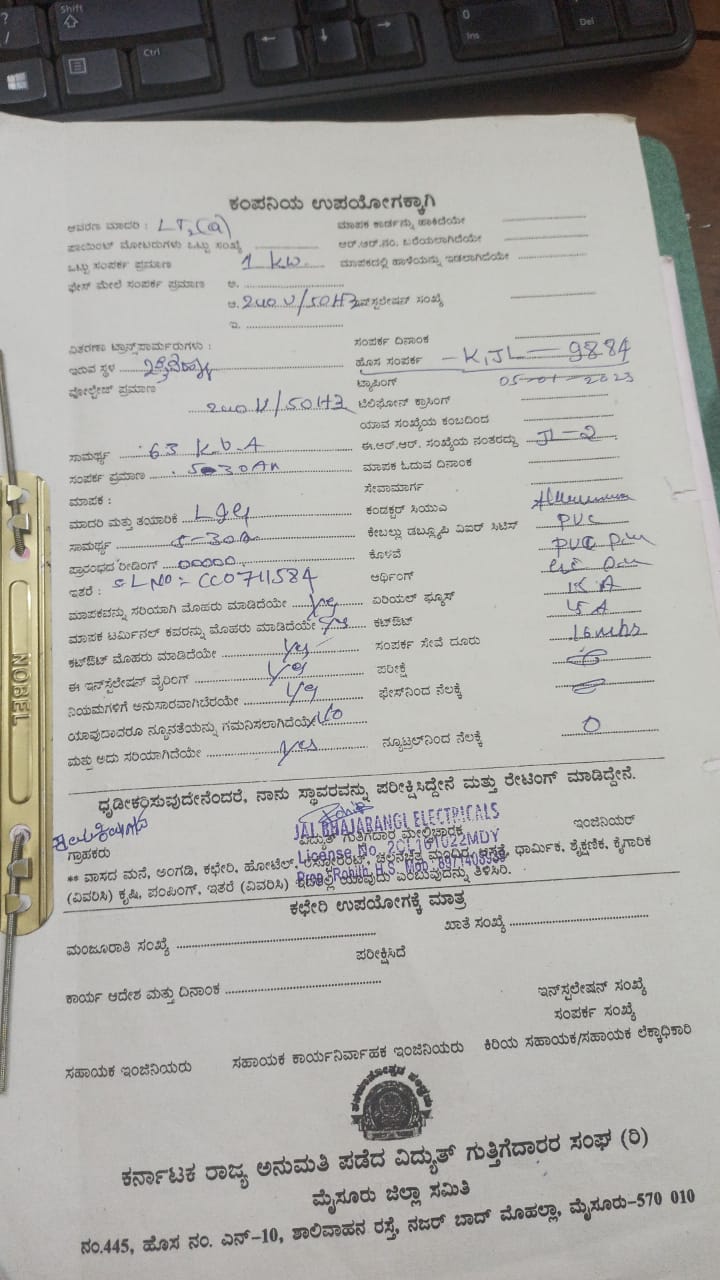 Shift
Ctrl
0
Ins
Del
ಕಂಪನಿಯ ಉಪಯೋಗಕ್ಕಾಗಿ
ಆವರಣ ಮಾದರಿ : LT2(a) ಮಾಪಕ ಕಾರ್ಡನ್ನು ಹಾಕಿದೆಯೇ
ಪಾಯಿಂಟ್ ಮೋಟರುಗಳು ಒಟ್ಟು ಸಂಖ್ಯೆ ಆರ್.ಆರ್.ನಂ. ಬರೆಯಲಾಗಿದೆಯೇ
ಒಟ್ಟು ಸಂಪರ್ಕ ಪ್ರಮಾಣ 1 KW. ಮಾಪಕದಲ್ಲಿ ಹಾಳೆಯನ್ನು ಇಡಲಾಗಿದೆಯೇ
ಫೇಸ್ ಮೇಲೆ ಸಂಪರ್ಕ ಪ್ರಮಾಣ ಅ.
ಆ. 240V/50HZ ಇನ್‌ಸ್ಟಲೇಷನ್ ಸಂಖ್ಯೆ
ಇ.
ವಿತರಣಾ ಟ್ರಾನ್ಸ್‌ಫಾರ್ಮರುಗಳು : ಸಂಪರ್ಕ ದಿನಾಂಕ
ಇರುವ ಸ್ಥಳ ಹೊಸ ಸಂಪರ್ಕ - KJL - 9884
ವೋಲ್ಟೇಜ್ ಪ್ರಮಾಣ ಟ್ಯಾಪಿಂಗ್ 05-01-2023
240V/50HZ ಟೆಲಿಫೋನ್ ಕ್ರಾಸಿಂಗ್
ಯಾವ ಸಂಖ್ಯೆಯ ಕಂಬದಿಂದ
ಸಾಮರ್ಥ್ಯ 63 K.V.A ಈ.ಆರ್.ಆರ್. ಸಂಖ್ಯೆಯ ನಂತರದ್ದು JL-2
ಸಂಪರ್ಕ ಪ್ರಮಾಣ ಮಾಪಕ ಓದುವ ದಿನಾಂಕ
ಮಾಪಕ : ಸೇವಾಮಾರ್ಗ
ಮಾದರಿ ಮತ್ತು ತಯಾರಿಕೆ L&G ಕಂಡಕ್ಟರ್ ಸಿಯುಎ
ಸಾಮರ್ಥ್ಯ 5-30A ಕೇಬಲ್ಲು ಡಬ್ಲ್ಯೂಪಿ ವಿಐರ್ ಸಿಟಿಸ್ PVC
ಪ್ರಾರಂಭದ ರೀಡಿಂಗ್ 00000 ಕೊಳವೆ PVC
ಇತರೆ : SLNO:- CC0711584 ಅರ್ಥಿಂಗ್
ಮಾಪಕವನ್ನು ಸರಿಯಾಗಿ ಮೊಹರು ಮಾಡಿದೆಯೇ Yes ಏರಿಯಲ್ ಫ್ಯೂಸ್ 15 A
ಮಾಪಕ ಟರ್ಮಿನಲ್ ಕವರನ್ನು ಮೊಹರು ಮಾಡಿದೆಯೇ Yes ಕಟ್‌ಔಟ್
ಕಟ್‌ಔಟ್ ಮೊಹರು ಮಾಡಿದೆಯೇ Yes ಸಂಪರ್ಕ ಸೇವೆ ದೂರು 16 mtrs
ಈ ಇನ್‌ಸ್ಟಲೇಷನ್ ವೈರಿಂಗ್ Yes ಪರೀಕ್ಷೆ
ನಿಯಮಗಳಿಗೆ ಅನುಸಾರವಾಗಿಬೆರೆಯೇ Yes ಫೇಸ್‌ನಿಂದ ನೆಲಕ್ಕೆ
ಯಾವುದಾದರೂ ನ್ಯೂನತೆಯನ್ನು ಗಮನಿಸಲಾಗಿದೆಯೇ No
ಮತ್ತು ಅದು ಸರಿಯಾಗಿದೆಯೇ Yes ನ್ಯೂಟ್ರಲ್‌ನಿಂದ ನೆಲಕ್ಕೆ 0
ಧೃಡೀಕರಿಸುವುದೇನೆಂದರೆ, ನಾನು ಸ್ಥಾವರವನ್ನು ಪರೀಕ್ಷಿಸಿದ್ದೇನೆ ಮತ್ತು ರೇಟಿಂಗ್ ಮಾಡಿದ್ದೇನೆ.
JAI BHAJARANGI ELECTRICALS
ಗ್ರಾಹಕರು ವಿದ್ಯುತ್ ಗುತ್ತಿಗೆದಾರ ಮೇಲ್ವಿಚಾರಕ ಇಂಜಿನಿಯರ್
License No. 2CL161022MDY
** ವಾಸದ ಮನೆ, ಅಂಗಡಿ, ಕಛೇರಿ, ಹೋಟೆಲ್, ರೆಸ್ಟೋರೆಂಟ್, ಚಲನಚಿತ್ರ ಮಂದಿರ, ಆಸ್ಪತ್ರೆ, ಧಾರ್ಮಿಕ, ಶೈಕ್ಷಣಿಕ, ಕೈಗಾರಿಕ
Prop. Rohith H.S. Mob:
(ವಿವರಿಸಿ) ಕೃಷಿ, ಪಂಪಿಂಗ್, ಇತರೆ (ವಿವರಿಸಿ) ಇದರಲ್ಲಿ ಯಾವುದು ಎಂಬುವುದನ್ನು ತಿಳಿಸಿರಿ.
ಕಛೇರಿ ಉಪಯೋಗಕ್ಕೆ ಮಾತ್ರ
ಮಂಜೂರಾತಿ ಸಂಖ್ಯೆ ಖಾತೆ ಸಂಖ್ಯೆ
ಪರೀಕ್ಷಿಸಿದೆ
ಕಾರ್ಯ ಆದೇಶ ಮತ್ತು ದಿನಾಂಕ
ಇನ್‌ಸ್ಪಲೇಷನ್ ಸಂಖ್ಯೆ
ಸಂಪರ್ಕ ಸಂಖ್ಯೆ
ಸಹಾಯಕ ಇಂಜಿನಿಯರು ಸಹಾಯಕ ಕಾರ್ಯನಿರ್ವಾಹಕ ಇಂಜಿನಿಯರು ಕಿರಿಯ ಸಹಾಯಕ/ಸಹಾಯಕ ಲೆಕ್ಕಾಧಿಕಾರಿ
ಕರ್ನಾಟಕ ರಾಜ್ಯ ಅನುಮತಿ ಪಡೆದ ವಿದ್ಯುತ್ ಗುತ್ತಿಗೆದಾರರ ಸಂಘ (ರಿ)
ಮೈಸೂರು ಜಿಲ್ಲಾ ಸಮಿತಿ
ನಂ.445, ಹೊಸ ನಂ. ಎನ್-10, ಶಾಲಿವಾಹನ ರಸ್ತೆ, ನಜರ್ ಬಾದ್ ಮೊಹಲ್ಲಾ, ಮೈಸೂರು-570 010
NOBEL